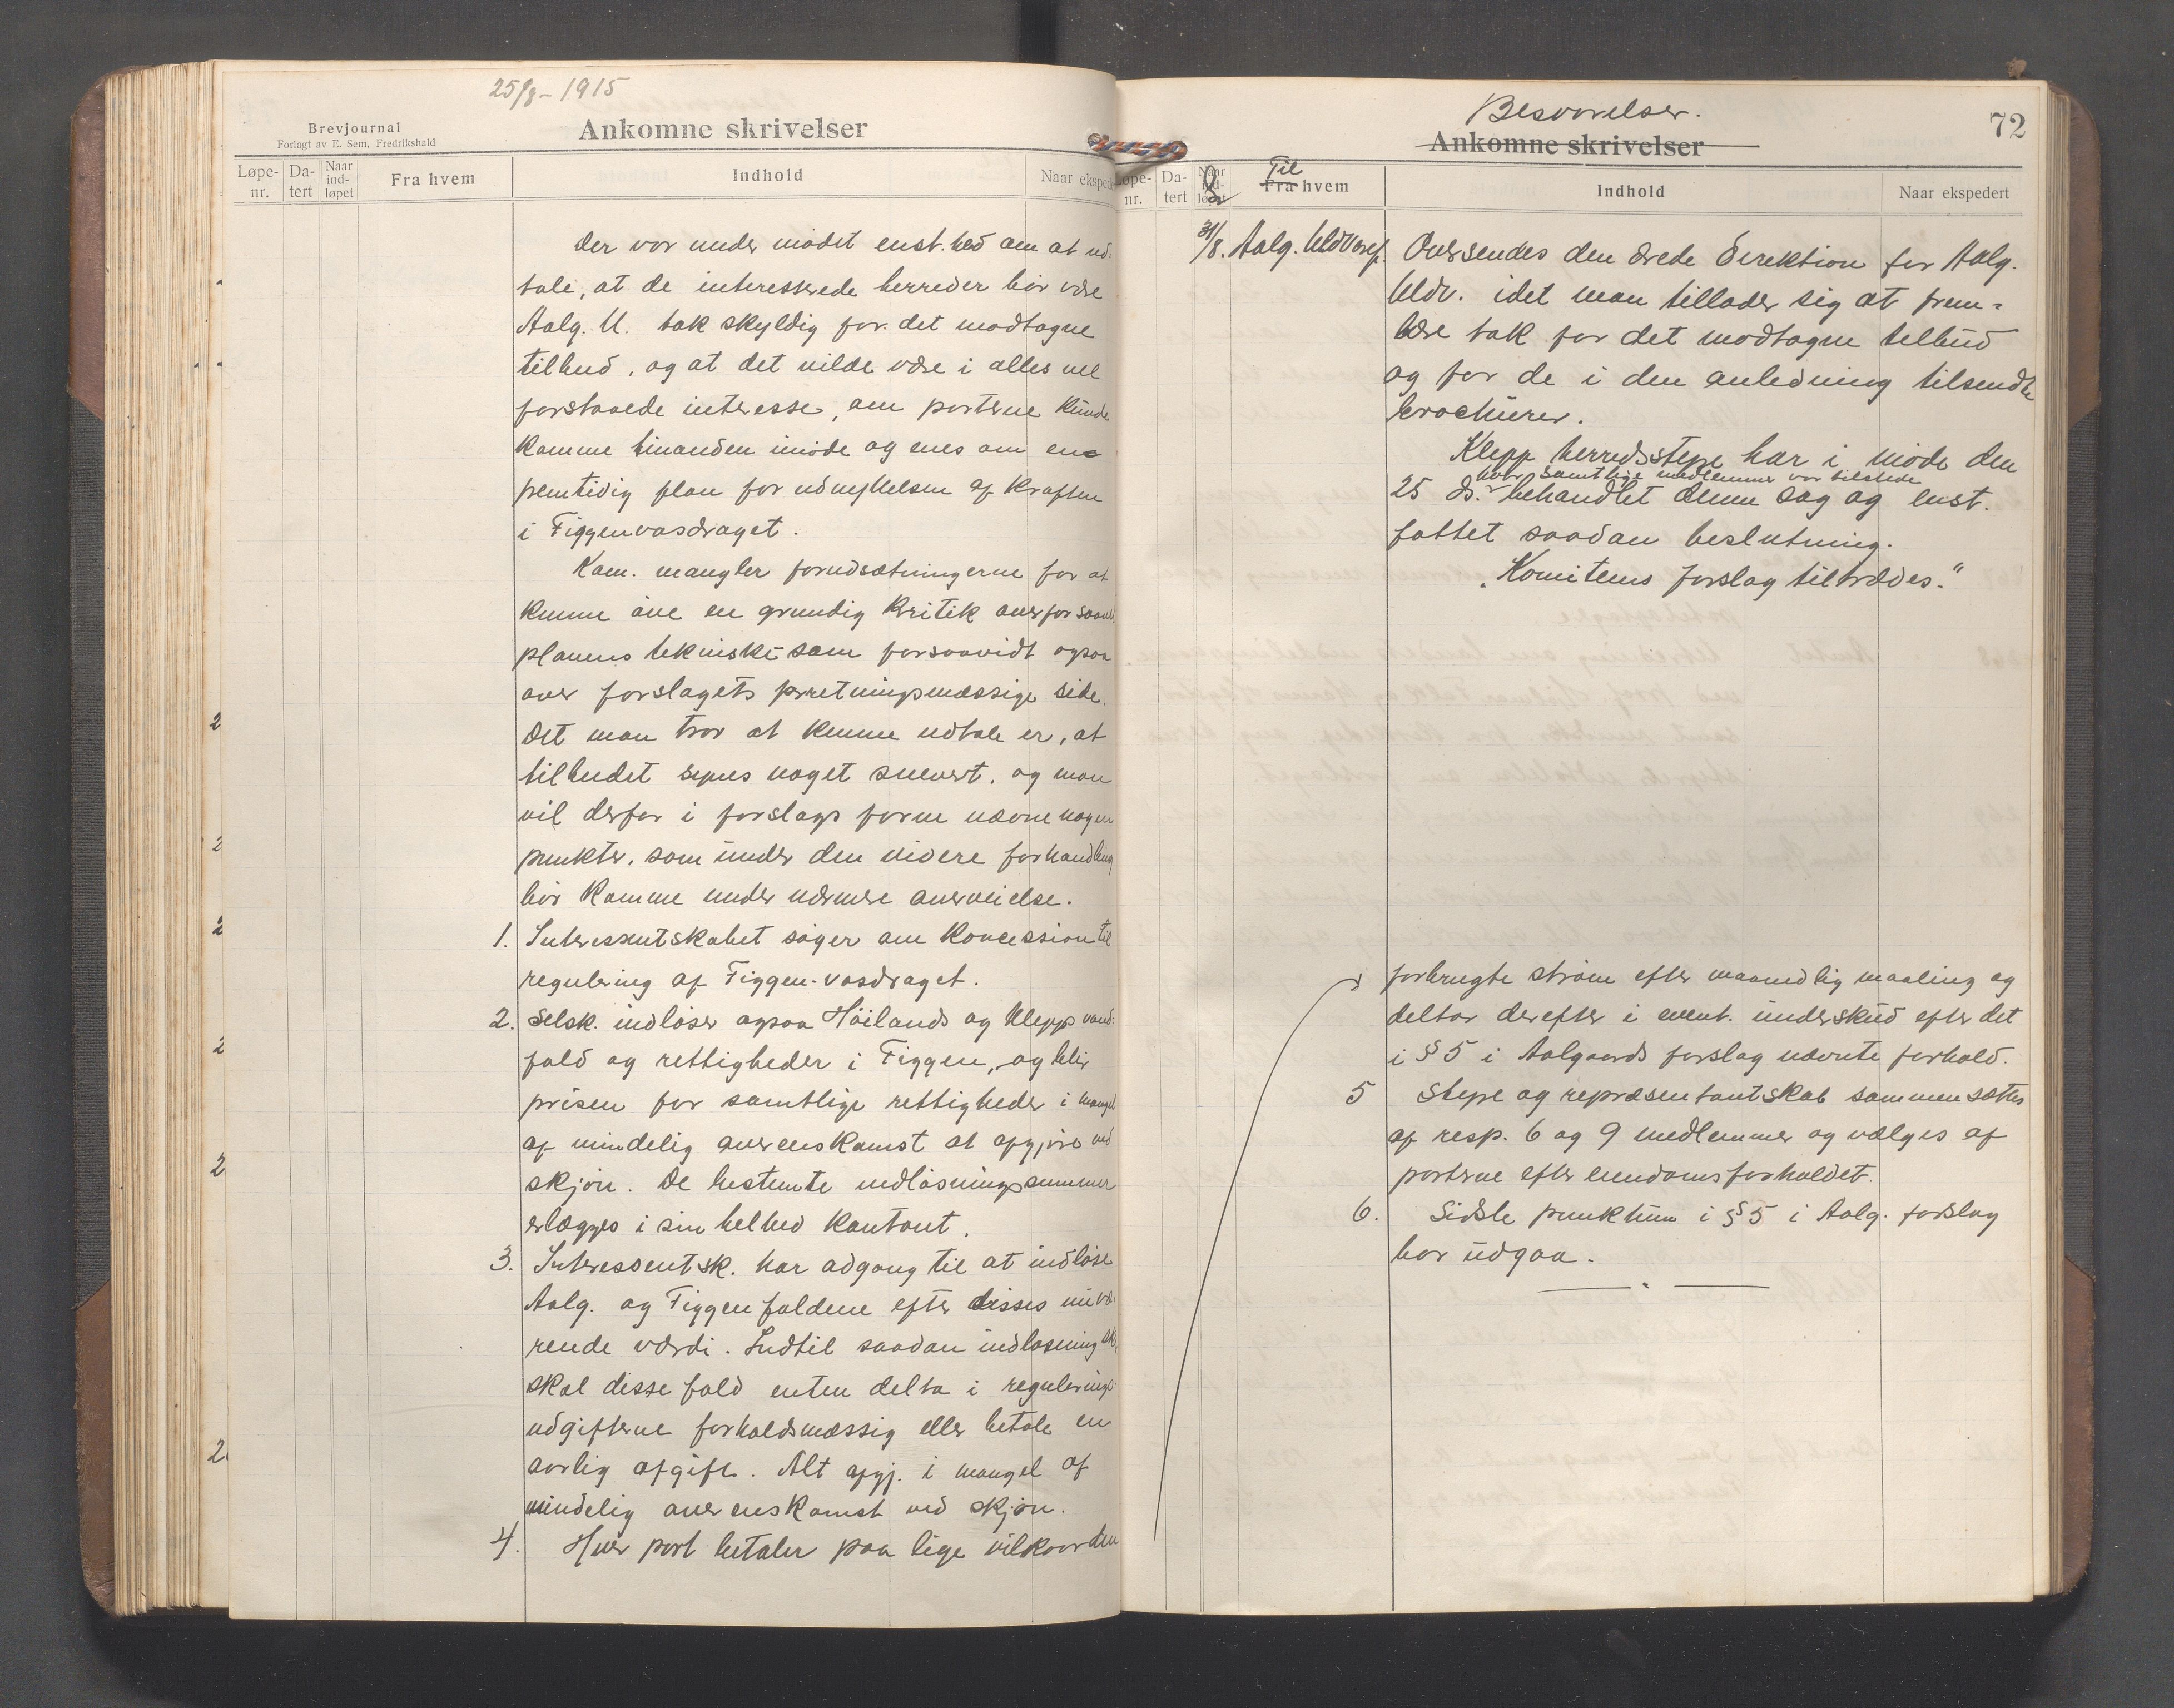 25/8 - 1915
Brevjournal
Forlagt av E. Sem, Fredrikshald
Ankomne skrivelser
Løpe-nr.
Da-tert
Naar ind-løpet
Fra hvem
Indhold
Naar eksped
Der var under mødet enst.hed om at ud-
tale, at de interesserede herreder bør være
Aalg. U. tak skyldig for det modtagne
tilbud, og at det vilde være i alles vel
forstaaede interesse, om parterne kunde
komme hinanden imøde og enes om en
fremtidig plan for udnyttelsen af kraften
i Figgenvasdraget.
Kom. mangler forudsætningerne for at
kunne øve en grundig kritik overfor saavel
planens tekniske som forsaavidt ogsaa
over forslagets forretningsmæssige side.
Det man tror at kunne udtale er, at
tilbudet synes noget snevert, og man
vil derfor i forslags form nævne nogen
punkter, som under den videre forhandling
bør komme under nærmere overveielse.
1. Interessentskabet søger om koncession til
regulering af Figgen-vasdraget.
2. Selsk. indløser ogsaa Høilands og Klepps vand-
fald og rettigheder i Figgen, og blir
prisen for samtlige rettigheder i mangel
af mindelig overenskomst at afgjøre ved
skjøn. De bestemte indløsningssummer
erlægges i sin helhed kontant.
3. Interessentsk. har adgang til at indløse
Aalg. og Figgen faldene efter disses nuvæ-
rende værdi. Indtil saadan indløsning sk
skal disse fald enten delta i regulerings
udgifterne forholdsmæssig eller betale en
særlig afgift. Alt afgj. i mangel af
mindelig overenskomst ved skjøn.
4. Hver part betaler paa lige vilkaar den
Besvarelser.
72
Ankomne skrivelser
Løpe-nr.
Da-tert
Naar ind-løpet
Til
Fra hvem
Indhold
Naar ekspedert
31/8. Aalg. Uldvaref. Oversendes den ærede Direktion for Aalg.
Uldv. idet man tillader sig at frem-
bære tak for det modtagne tilbud
og for de i den anledning tilsendte
brochurer.
Klepp herredsstyre har i møde den
hvor samtlige medlemmer var tilstede
25 ds. behandlet denne sag og enst.
fattet saadan beslutning.
"Komiteens forslag tiltrædes."
forbrugte strøm efter maanedlig maaling og
deltar derefter i event. underskud efter det
i § 5 i Aalgaards forslag nævnte forhold.
5 Styre og repræsentantskab sammensættes
af resp. 6 og 9 medlemmer og vælges af
parterne efter eiendomsforholdet.
6. Sidste punktum i § 5 i Aalg. forslag
bør udgaa.